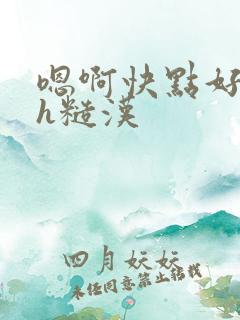 嗯啊快點好
h糙漢
四月妖妖
未经同意禁止转载